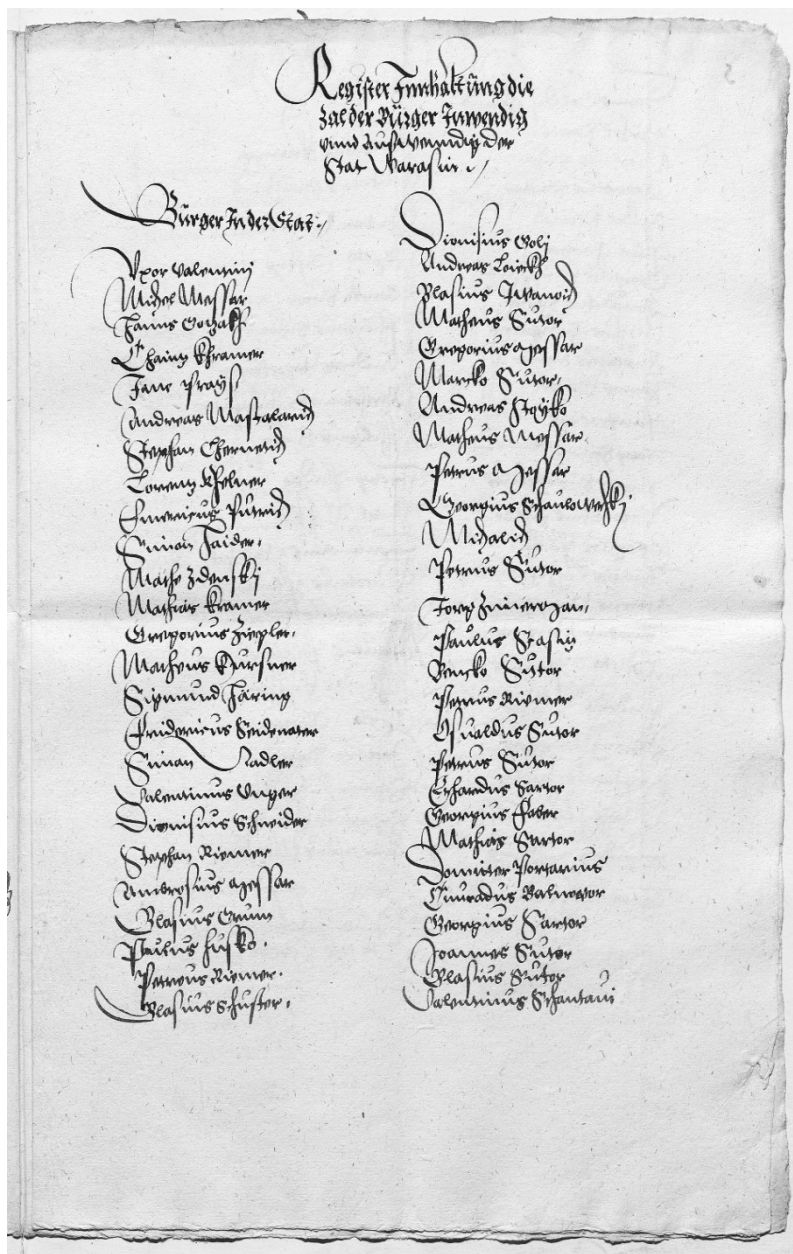 Register Innhaltung die
Zal der Bürger Inwendig
unnd Auswenndig der
Stat Warasin
Bürger In der Stat
Uxor Valentinij
Michel Messar
Hanns
Chainz Khramer
Jane Prayß
Andreas Mastalarich
Stephan Chernetich
Lorentz Khelner
Emericus Putrich
Simon Haider
Mathe Zdenskj
Mathias Kramer
Gregorius Ziegler
Matheus Kursner
Sigmund Häring
Fridericus Seidennater
Simon Nadler
Valentinus Unger
Dionisius Schneider
Stephan Riemer
Ambrosius Messar
Blasius Grum
Paulus Husko
Petrus Riemer
Blasius Schuster
Dionisius Golj
Andreas
Blasius Iwanoich
Matheus Sutor
Gregorius Messar
Marcko Sutor
Andreas Stoyko
Matheus Messar
Petrus Messar
Georgius
Michalich
Petrus Sutor
Paulus
Bencko Sutor
Petrus Riemer
Osualdus Sutor
Petrus Sutor
Erhardus Sartor
Georgius Faber
Mathias Sartor
Portarius
Cunradus Balneator
Georgius Sartor
Joannes Sutor
Blasius Sutor
Valentinus